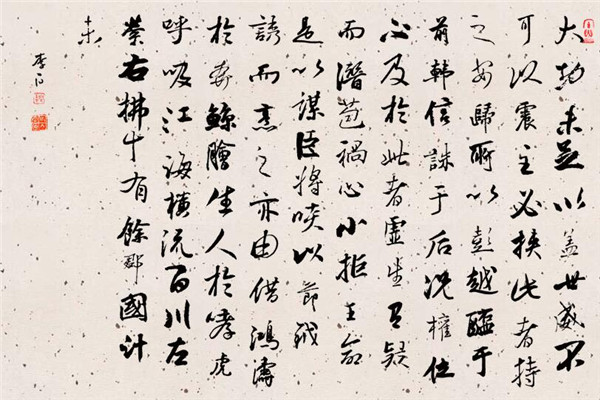 大勋未足以盖世威不
可以震主必挟此者持
之安歸所以彭越醢于
前韓信誅于后况權位
不及於此者虚生危疑
而潛苞禍心小拒王命
是以謀臣將啖以節鉞
誘而烹之亦由借鴻濤
於奔鯨鱠生人於哮虎
呼吸江海横流百川左
縈右拂十有餘郡國計
未
李白